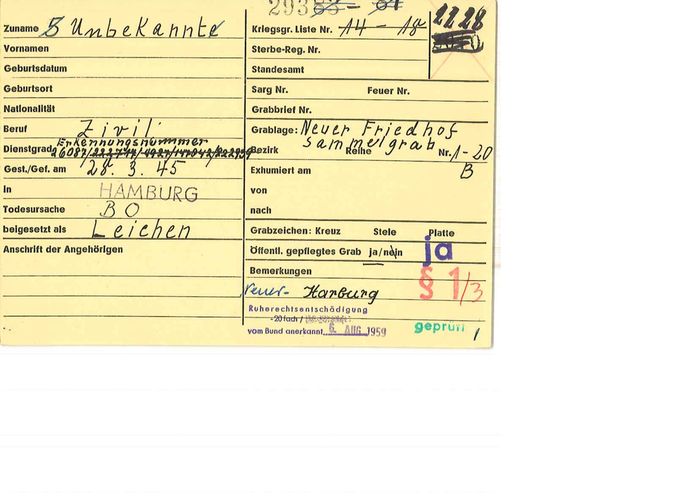 Zuname 5 Unbekannte
Vornamen
Geburtsdatum
Geburtsort
Nationalität
Beruf Zivil
Erkennungsnummer
Dienstgrad
Gest./Gef. am 28. 3. 45
In HAMBURG
Todesursache BO
beigesetzt als Leichen
Anschrift der Angehörigen
Kriegsgr. Liste Nr. 14 - 18
2228
Sterbe-Reg. Nr.
Standesamt
Sarg Nr. Feuer Nr.
Grabbrief Nr.
Grablage: Neuer Friedhof
Sammelgrab
Bezirk Reihe Nr. 1-20
Exhumiert am B
von
nach
Grabzeichen: Kreuz Stele Platte
Öffentl. gepflegtes Grab ja/nein ja
Bemerkungen § 1/3
Neuer- Harburg
Ruherechtsentschädigung
-20fach /
vom Bund anerkannt 6. AUG. 1959
geprüft 1